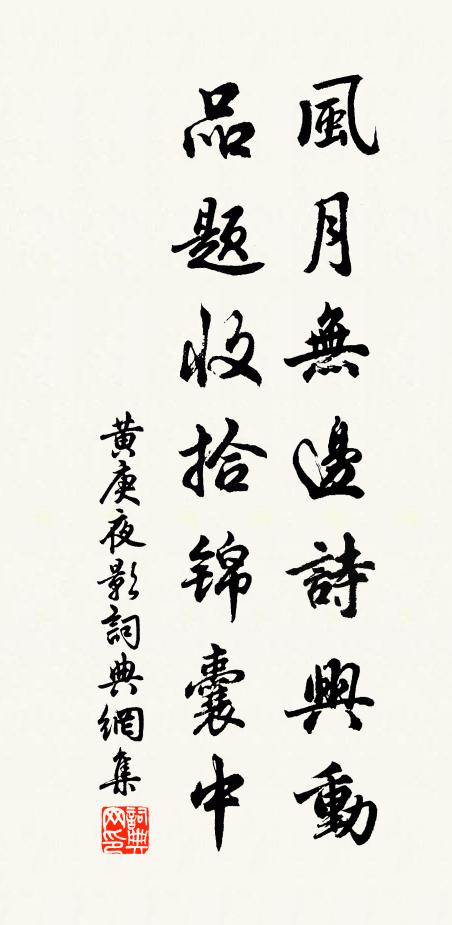 風月無邊詩興動
品题收拾锦囊中
黄庚夜影詞典網集
詞典网印